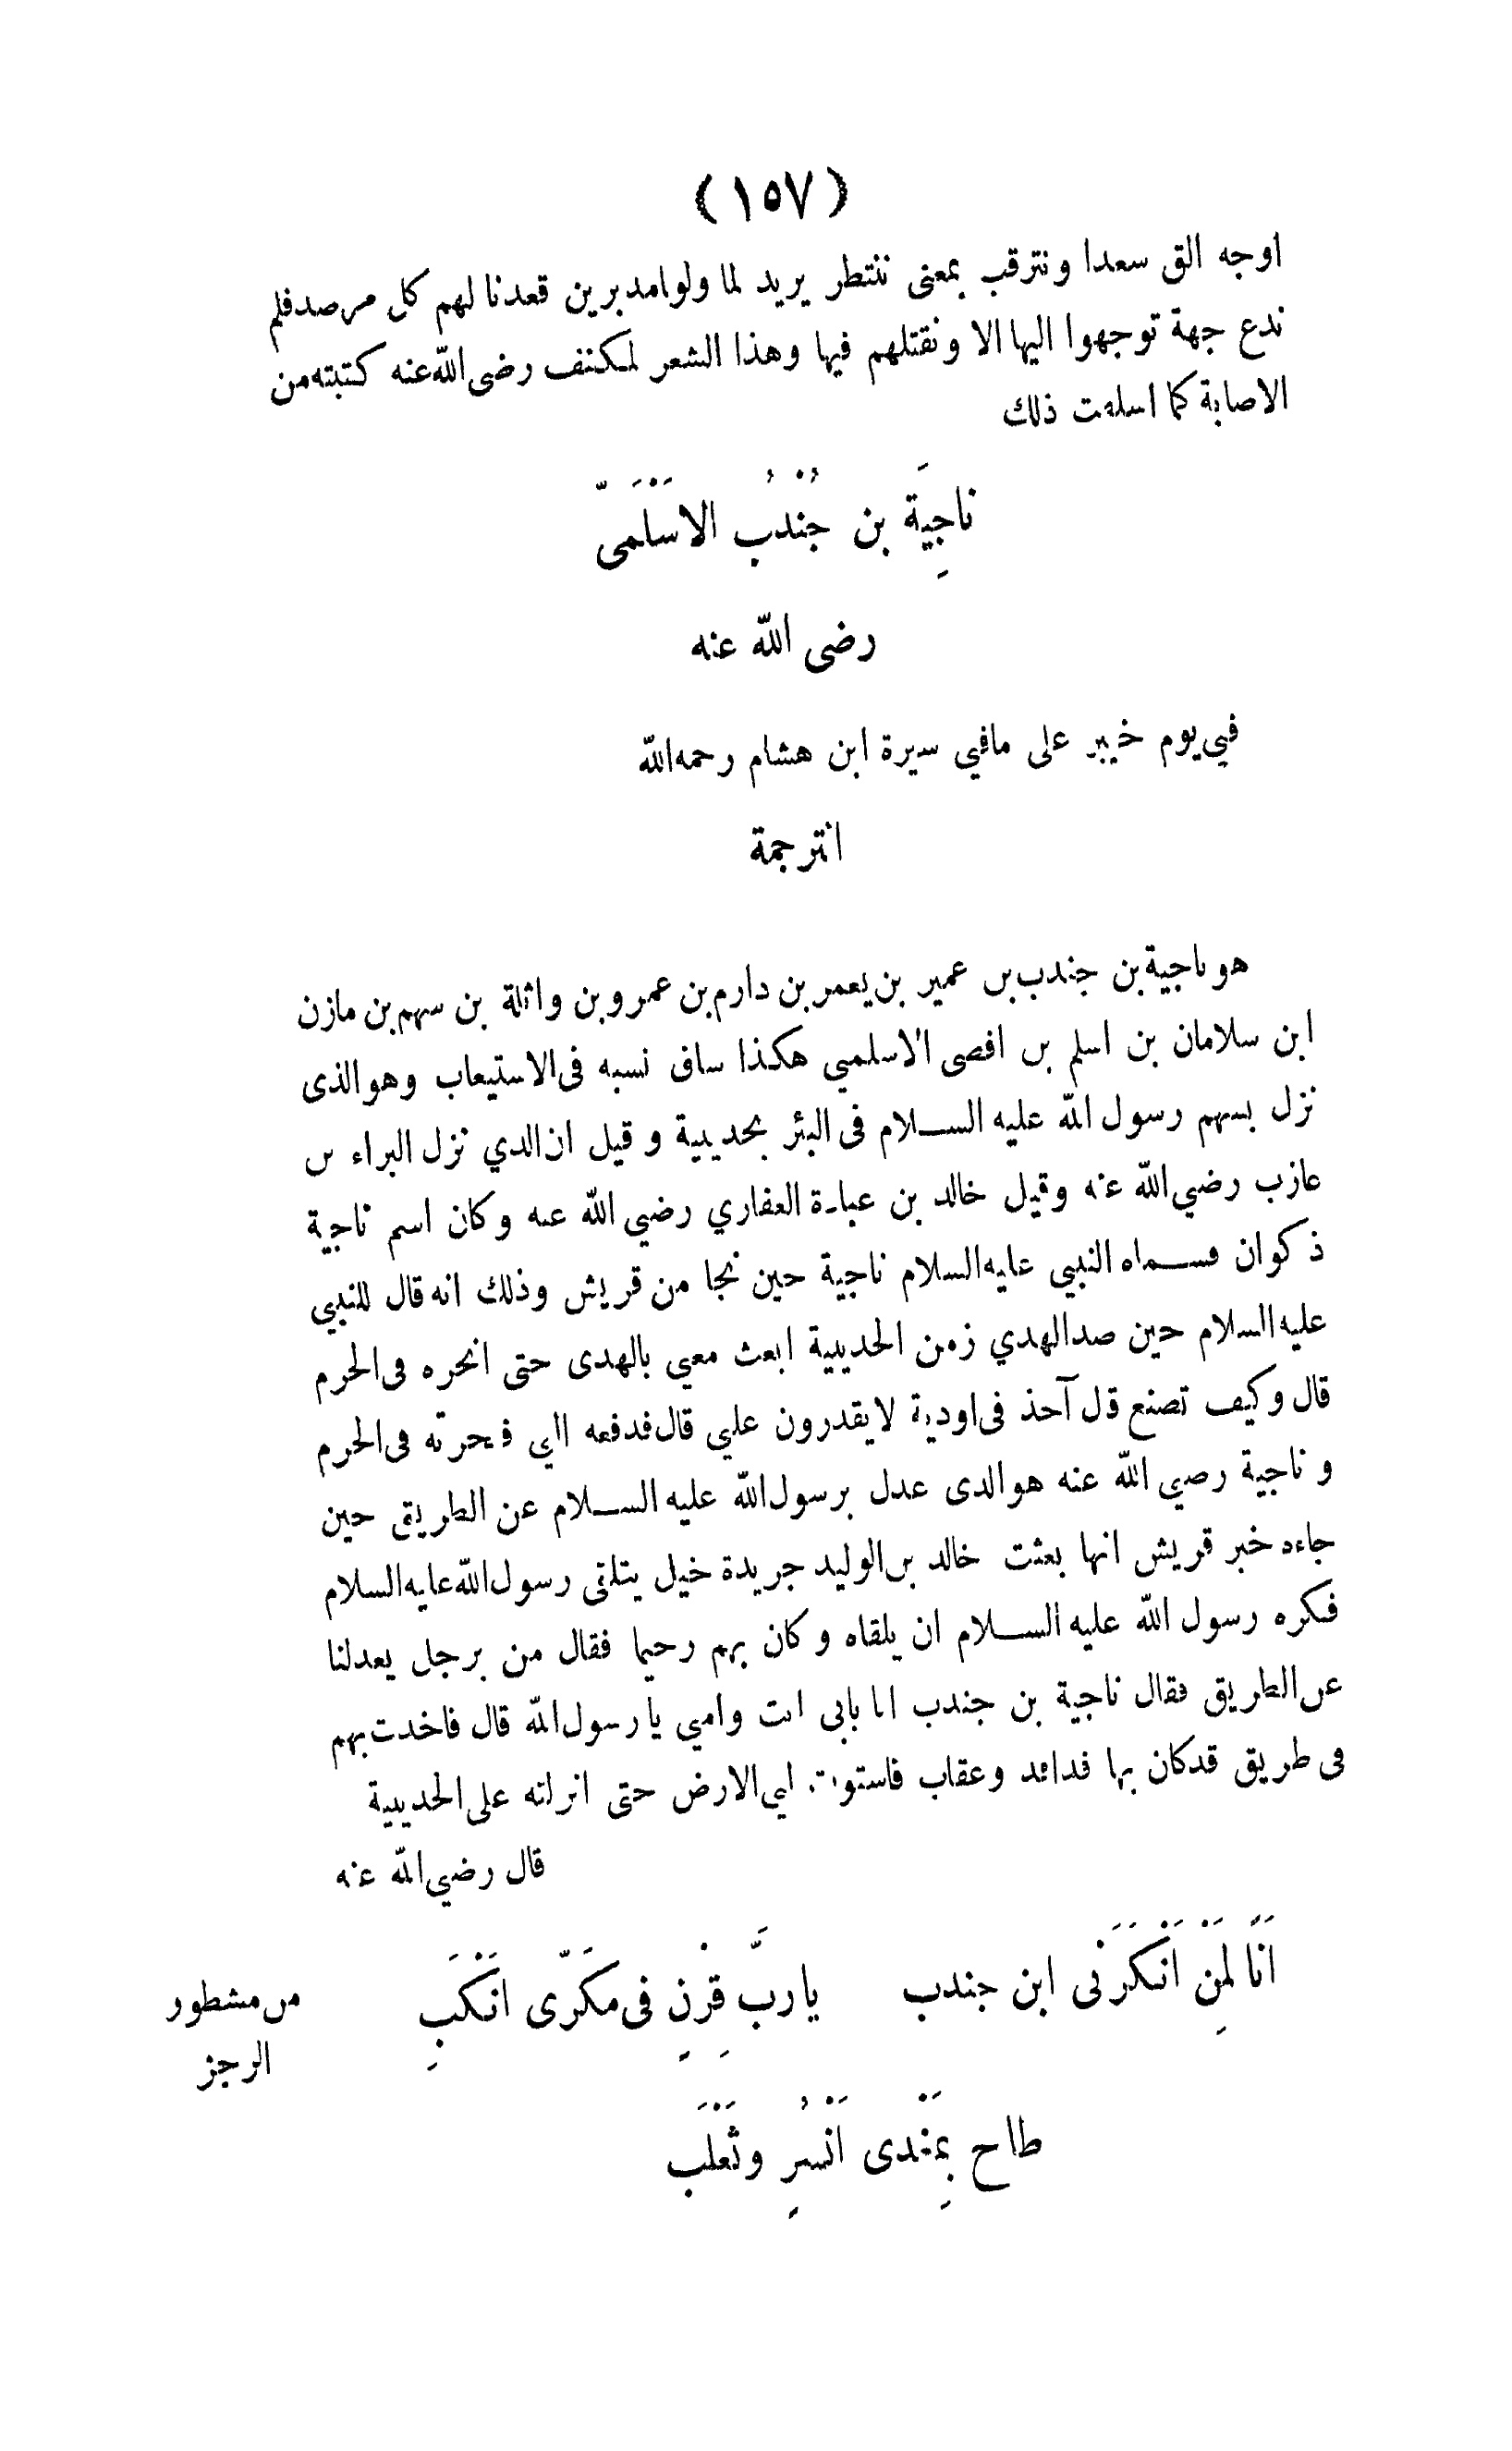 (١٥٧)
اوجه الق سعدا ونترقب بمعنى ننتظر يريد لما ولوا مدبرين قعدنا لهم كل مرصد فلم
ندع جهة توجهوا اليها الا ونقتلهم فيها وهذا الشعر لمكنف رضى الله عنه كتبته من
الاصابة كما اسلفت ذلك
ناجِيَة بن جُنْدُب الاَسْلَمىّ
رضى الله عنه
في يوم خيبر على مافي سيرة ابن هشام رحمه الله
الترجمة
هو ناجية بن جندب بن عمير بن يعمر بن دارم بن عمرو بن واثلة بن سهم بن مازن
ابن سلامان بن اسلم بن افصى الاسلمي هكذا ساق نسبه فى الاستيعاب وهو الذى
نزل بسهم رسول الله عليه السلام فى البئر بحديبية وقيل ان الذي نزل البراء بن
عازب رضي الله عنه وقيل خالد بن عبادة الغفاري رضي الله عنه وكان اسم ناجية
ذكوان فسماه النبي عليه السلام ناجية حين نجا من قريش وذلك انه قال للنبي
عليه السلام حين صد الهدي زمن الحديبية ابعث معي بالهدى حتى انحره فى الحرم
قال وكيف تصنع قال آخذ فى اودية لا يقدرون علي قال فدفعه الي فنحرته فى الحرم
وناجية رضي الله عنه هو الذى عدل برسول الله عليه السلام عن الطريق حين
جاءه خبر قريش انها بعثت خالد بن الوليد جريدة خيل يتلقى رسول الله عليه السلام
فكره رسول الله عليه السلام ان يلقاه وكان بهم رحيما فقال من برجل يعدلنا
عن الطريق فقال ناجية بن جندب انا بابى انت وامي يا رسول الله قال فاخذت بهم
فى طريق قد كان بها فدافد وعقاب فاستوت الي الارض حتى انزلته على الحديبية
قال رضي الله عنه
اَنَا لِمَنْ اَنْكَرَنْى ابن جندب يا ربَّ قِرْنٍ فى مَكَرّى اَنْكَبِ
من مشطور
الرجز
طاح بِمَغْدى اَنْسُرٍ وثَعْلَب